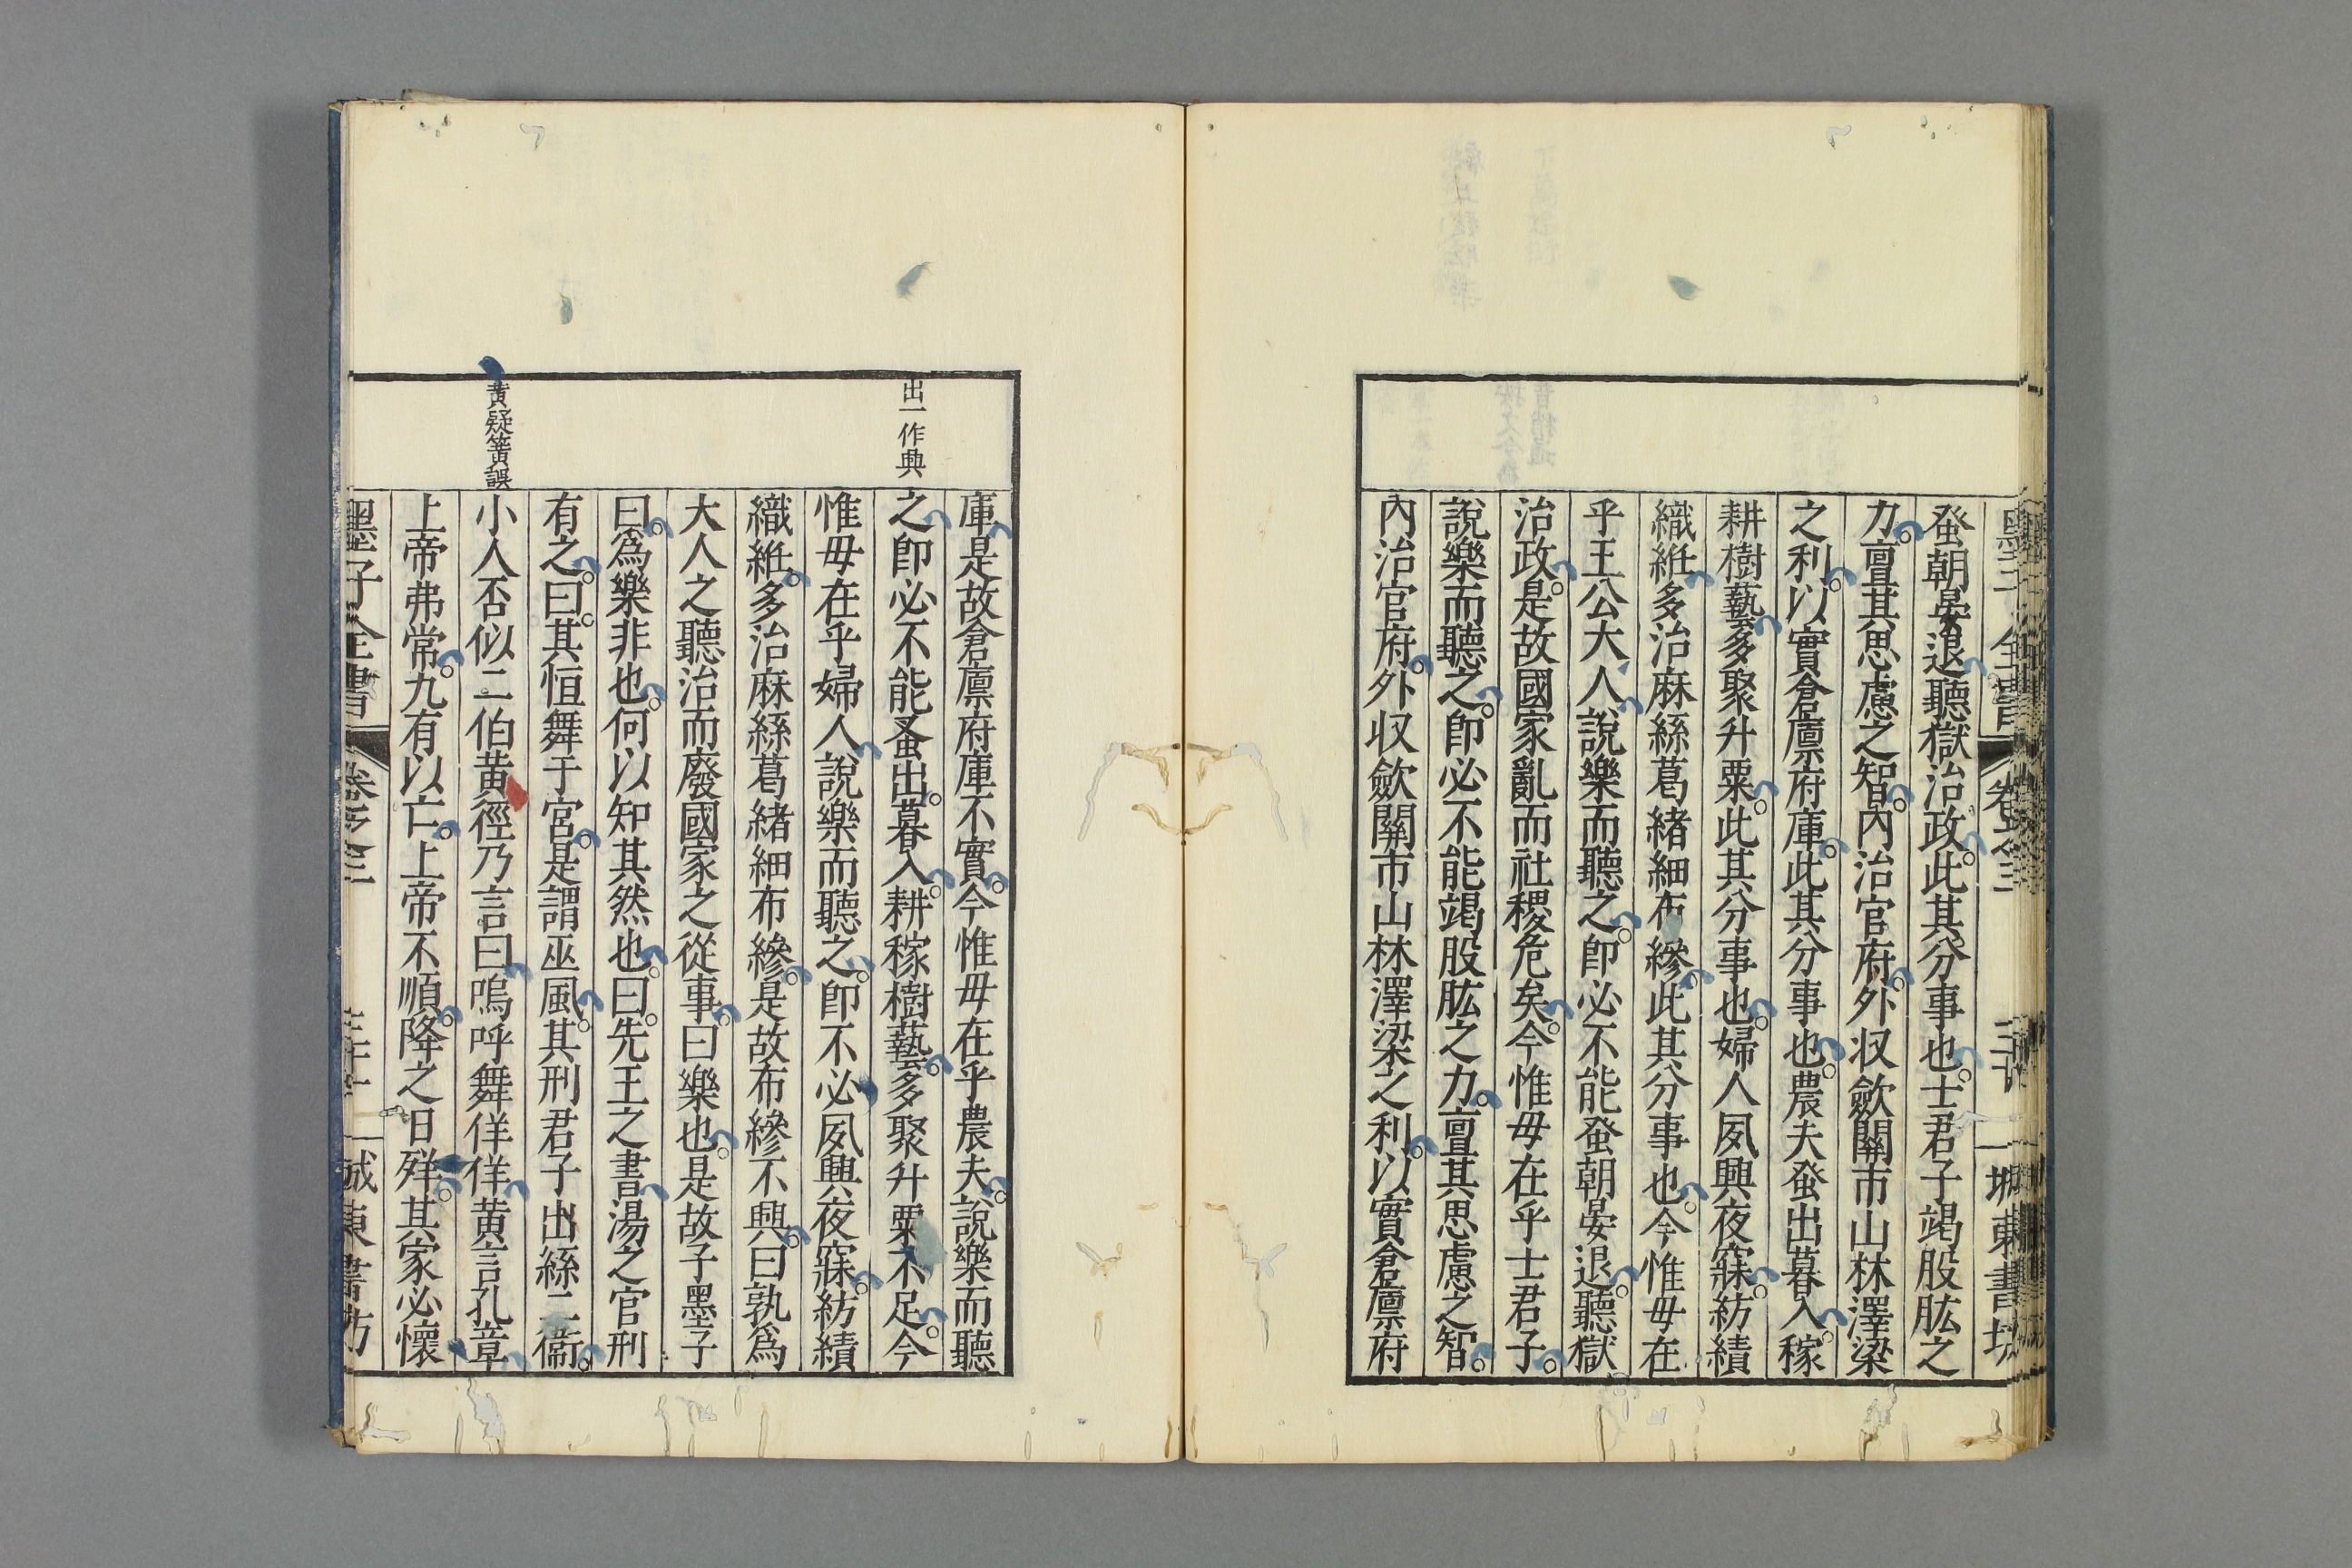 蚤朝晏退聽獄治政。此其分事也。士君子竭股肱之
力。亶其思慮之智。內治官府。外収歛關市山林澤梁
之利。以實倉廩府庫。此其分事也。農夫蚤出暮入。稼
耕樹藝。多聚升粟。此其分事也。婦人夙興夜寐。紡績
織紝。多治麻絲葛緒細布縿。此其分事也。今惟毋在
乎王公大人說樂而聽之。卽必不能蚤朝晏退。聽獄
治政。是故國家亂而社稷危矣。今惟毋在乎士君子。
說樂而聽之。卽必不能竭股肱之力。亶其思慮之智。
內治官府。外収歛關市山林澤梁之利。以實倉廩府
庫。是故倉廩府庫不實。今惟毋在乎農夫。說樂而聽
出一作典
之卽必不能蚤出。暮入。耕稼樹藝。多聚升粟不足。今
惟毋在乎婦人說樂而聽之。卽不必夙興夜寐。紡績
織紝。多治麻絲葛緒細布縿。是故布縿不興。曰孰爲
大人之聽治而廢國家之從事。曰樂也。是故子墨子
曰。爲樂非也。何以知其然也。曰。先王之書湯之官刑
有之。曰。其恒舞于宮。是謂巫風。其刑君子出絲二衞。
黃疑簧誤
小人否似二伯黃徑乃言曰嗚呼舞佯佯黃言孔章
上帝弗常。九有以亡。上帝不順。降之日殚。其家必懷
墨子全書 卷之三 一 城東書坊